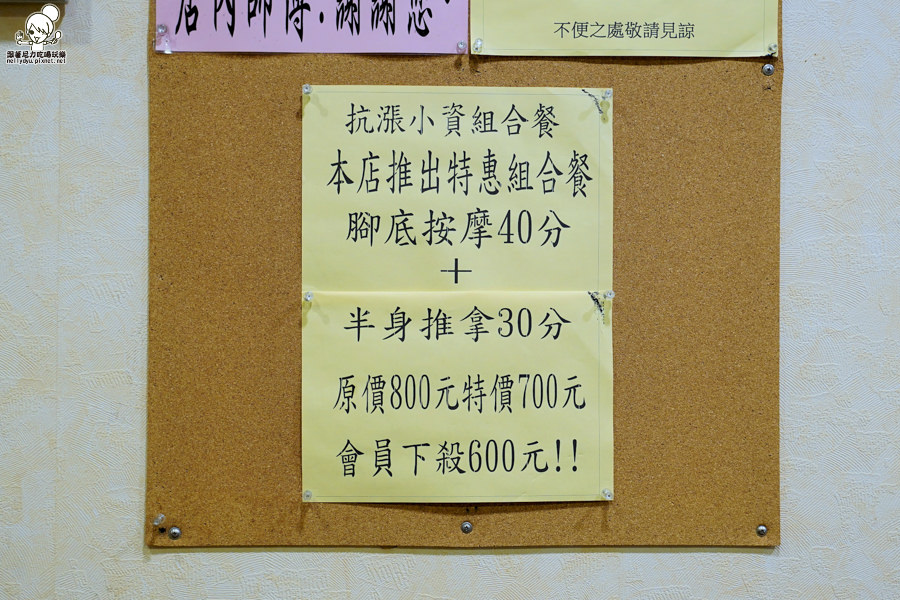 店內師傅.謝謝您
不便之處敬請見諒
跟著尼力吃喝玩樂
nellydyu.pixnet.net
抗漲小資組合餐
本店推出特惠組合餐
腳底按摩40分
+
半身推拿30分
原價800元特價700元
會員下殺600元!!